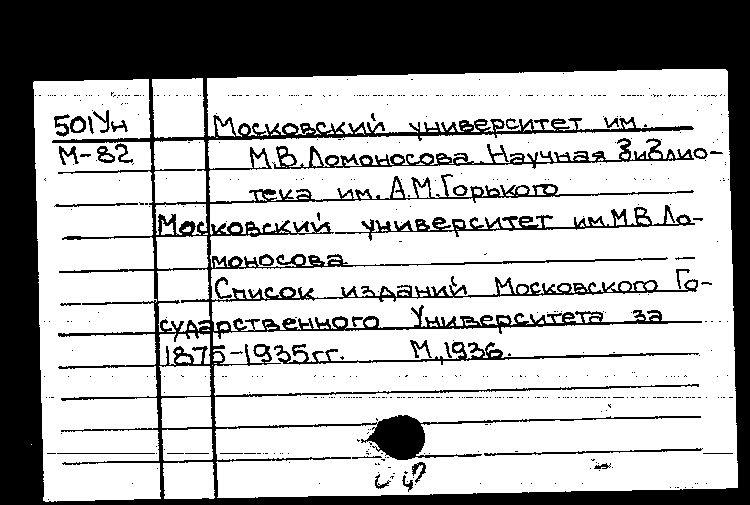 501Ун Московский университет им.
М-82 М.В.Ломоносова. Научная библио-
тека им. А.М.Горького
Московский университет им.М.В.Ло-
моносова
Список изданий Московского Го-
сударственного Университета за
1875-1935гг. М.,1936.